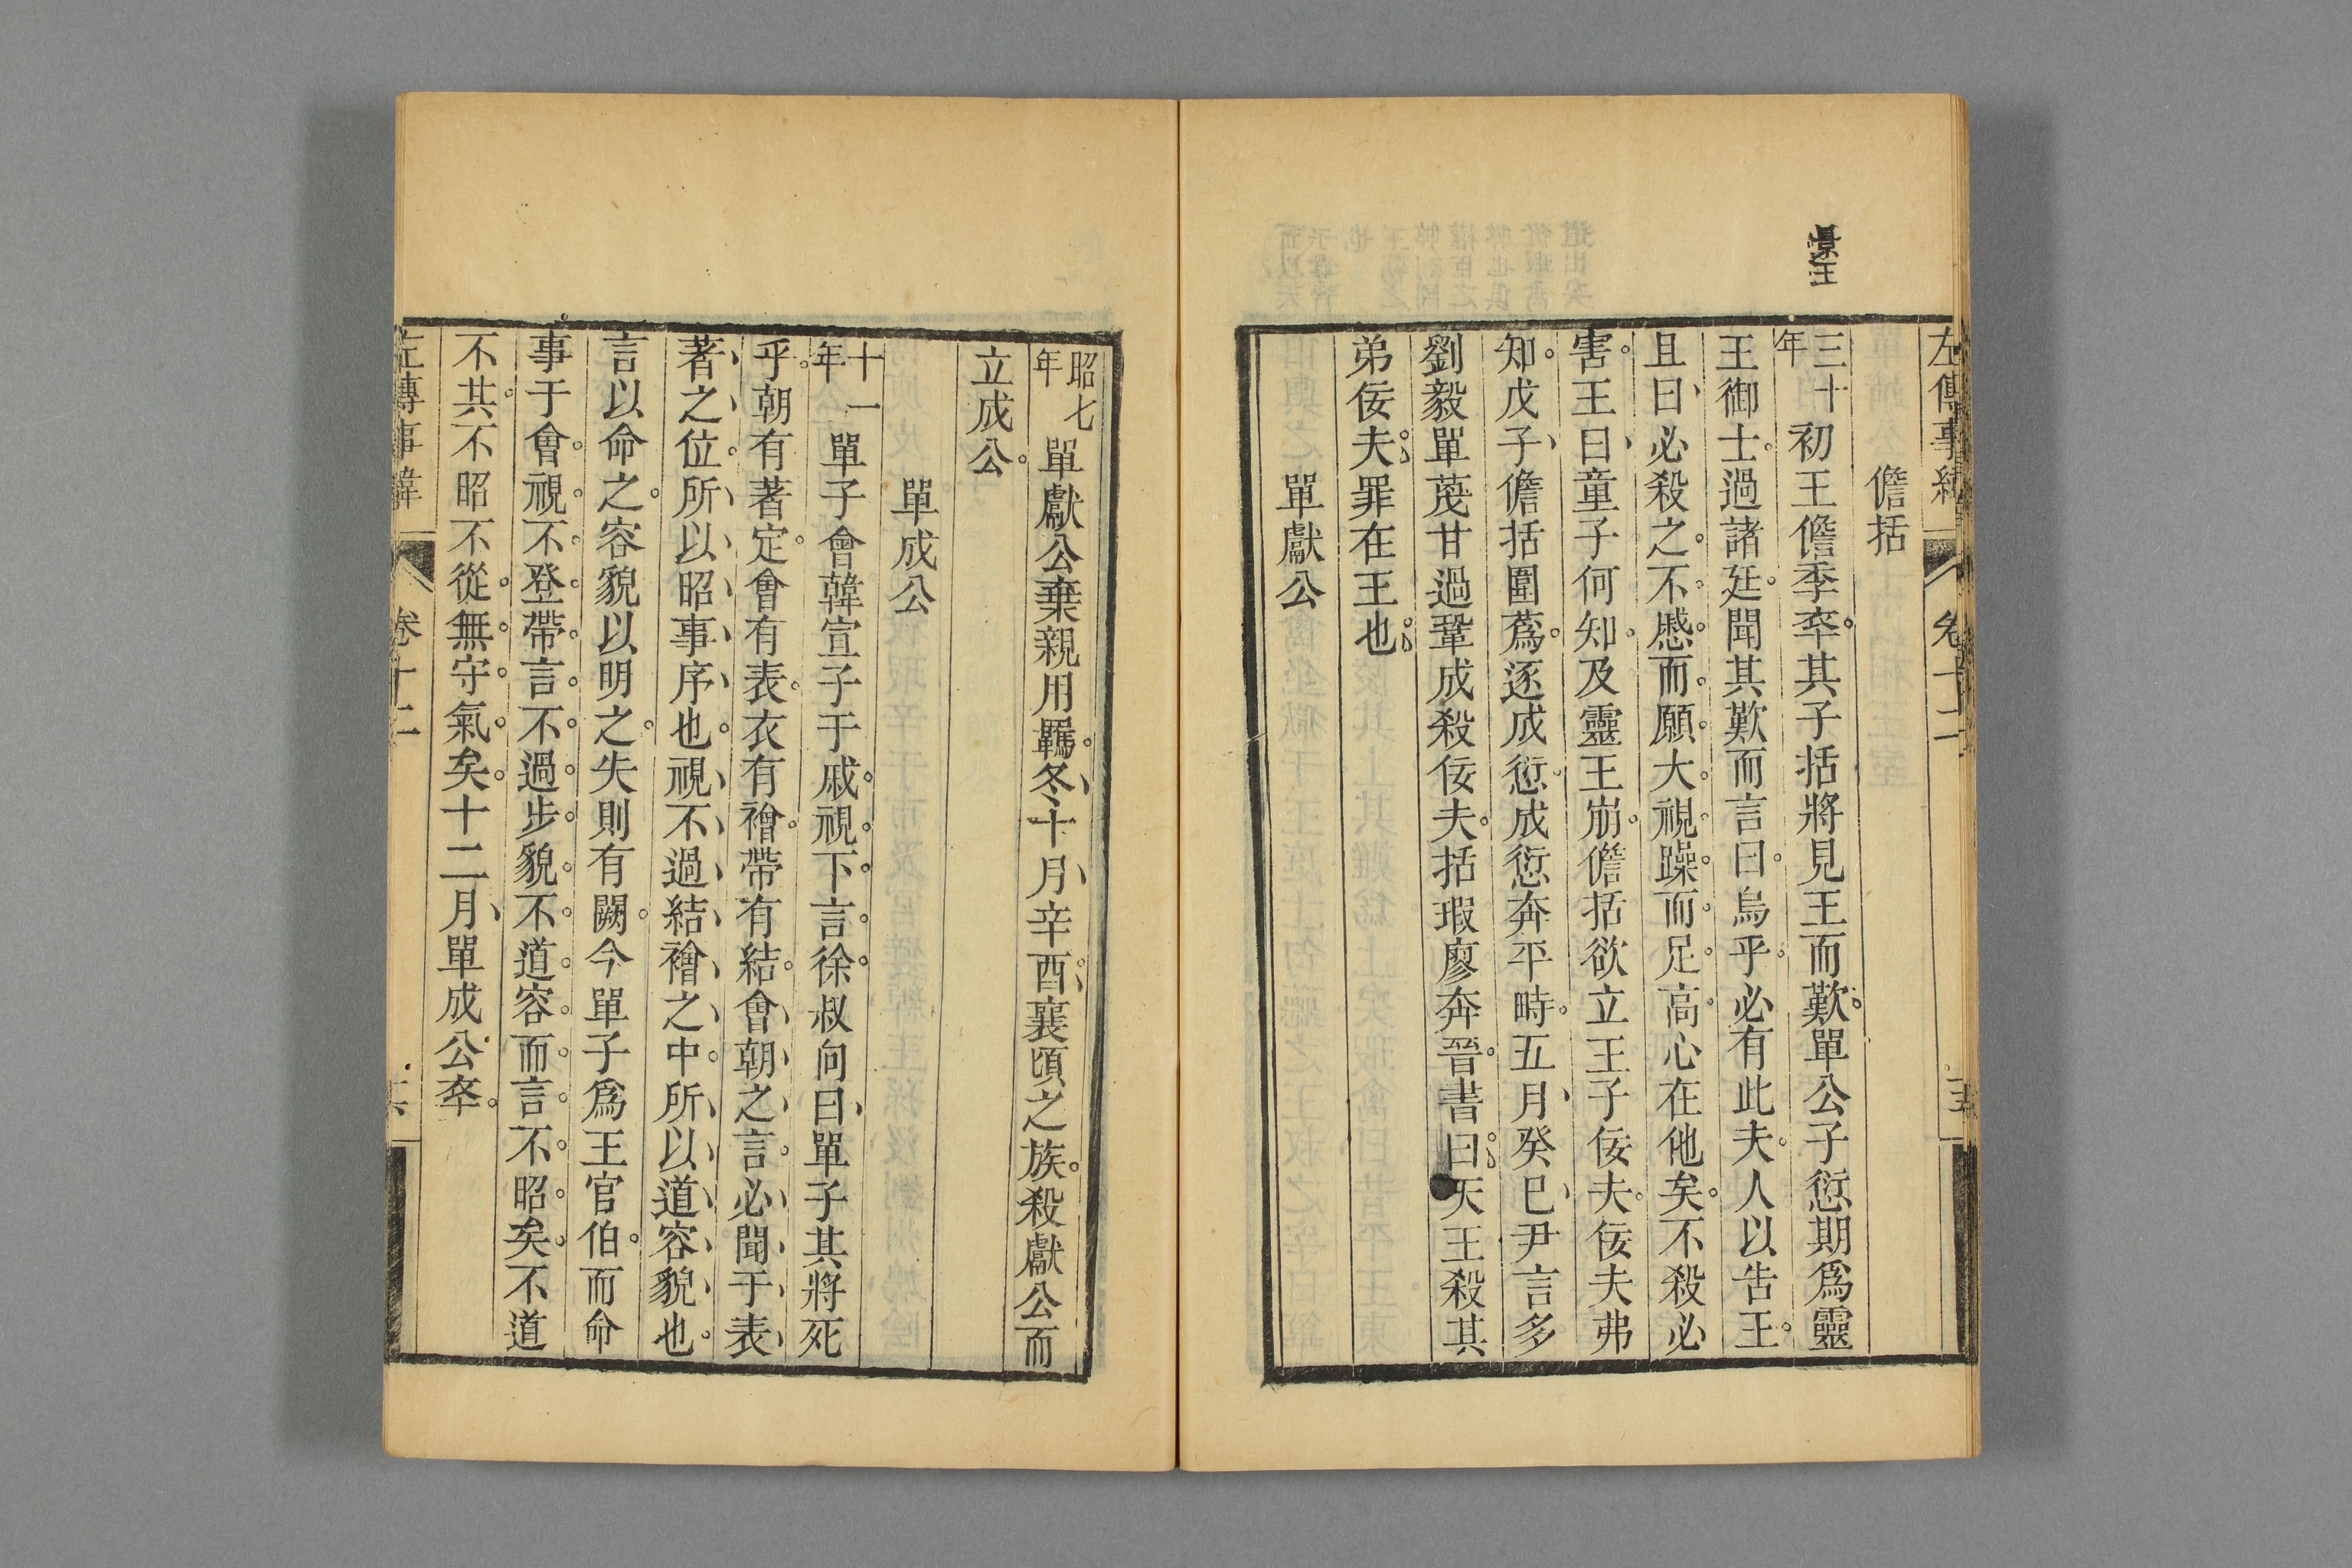 景王
左傳事緯
卷十二
儋括
三十年
初王儋季卒其子括將見王而歎單公子愆期爲靈
王御士過諸廷聞其歎而言曰烏乎必有此夫人以告王
且曰必殺之不慼而願大視躁而足高心在他矣不殺必
害王曰童子何知及靈王崩儋括欲立王子佞夫佞夫弗
知戊子儋括圍蔿逐成愆成愆奔平畤五月癸巳尹言多
劉毅單蔑甘過鞏成殺佞夫括瑕廖奔晉書曰天王殺其
弟佞夫罪在王也
單獻公
昭七年
單獻公棄親用羈冬十月辛酉襄頃之族殺獻公而
立成公
單成公
十一年
單子會韓宣子于戚視下言徐叔向曰單子其將死
乎朝有著定會有表衣有襘帶有結會朝之言必聞于表
著之位所以昭事序也視不過結襘之中所以道容貌也
言以命之容貌以明之失則有闕今單子爲王官伯而命
事于會視不登帶言不過步貌不道容而言不昭矣不道
不共不昭不從無守氣矣十二月單成公卒
左傳事緯
卷十二